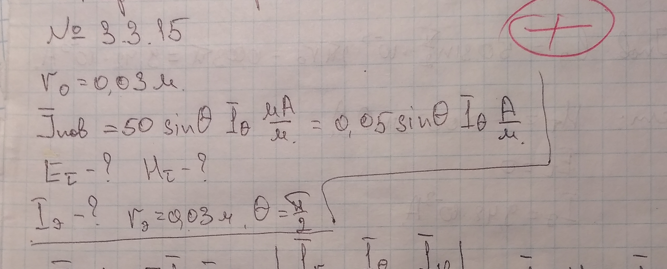 № 3.3.15
r₀ = 0,03 м.
J̅пов = 50 sinθ 1̅θ мА/м. = 0,05 sinθ 1̅θ А/м.
Eτ - ? Hτ - ?
Iэ - ? rэ = 0,03 м, θ = π/2